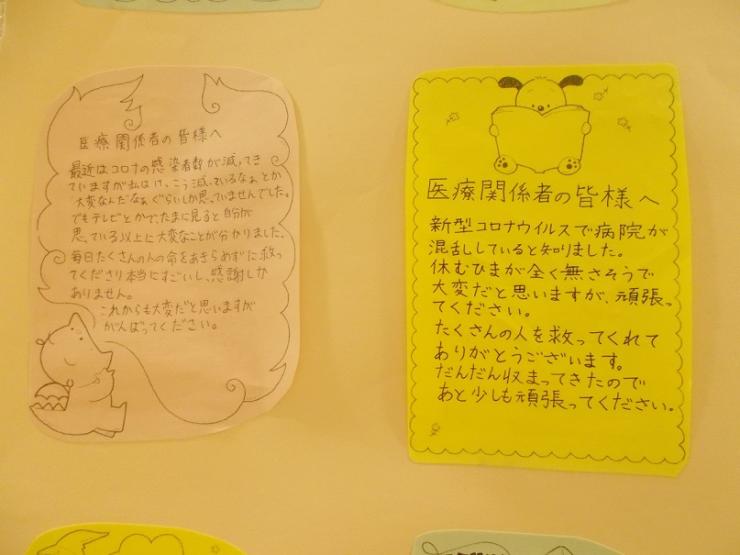 医療関係者の皆様へ
最近はコロナの感染者数が減ってき
ていますが私はけっこう減っているなぁとか
大変なんだなぁぐらいしか思っていませんでした。
でもテレビとかでたまに見ると自分が
思っている以上に大変なことが分かりました。
毎日たくさんの人の命をあきらめずに救っ
てくださり本当にすごいし、感謝しか
ありません。
これからも大変だと思いますが
がんばってください。
医療関係者の皆様へ
新型コロナウイルスで病院が
混乱ししていると知りました。
休むひまが全く無さそうで
大変だと思いますが、頑張っ
てください。
たくさんの人を救ってくれて
ありがとうございます。
だんだん収まってきたので
あと少しも頑張ってください。